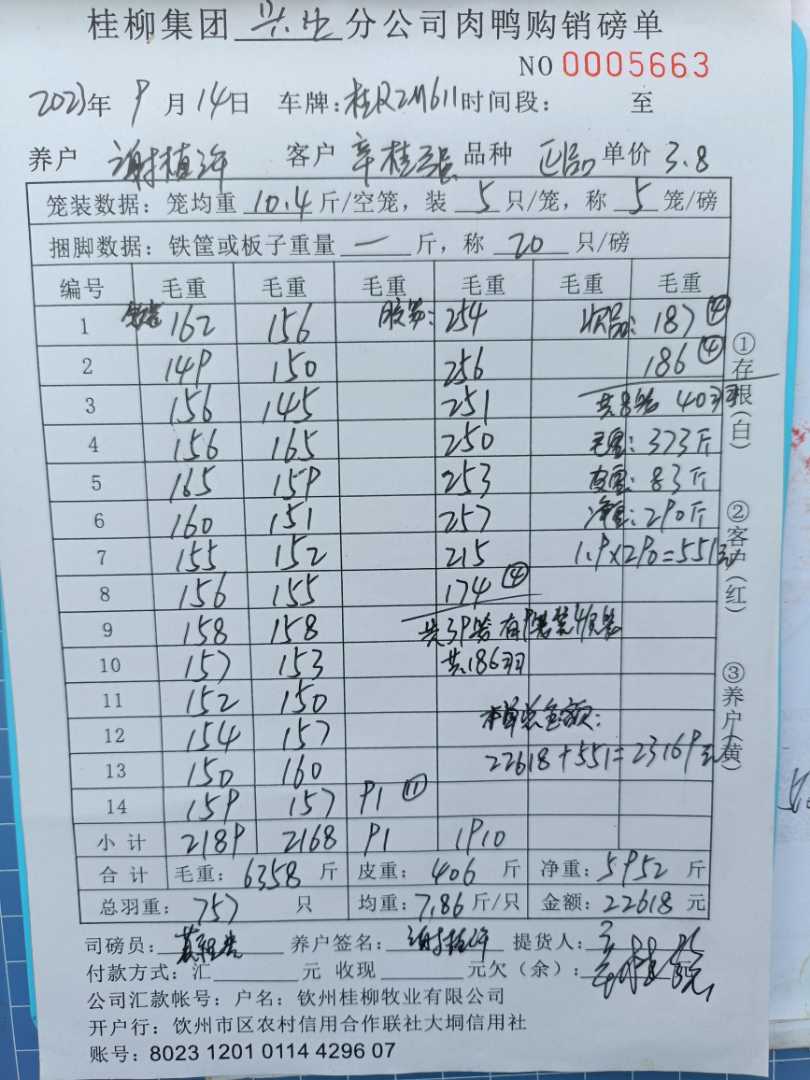 桂柳集团 分公司肉鸭购销磅单
NO 0005663
2023年 9月14日 车牌:桂R2M611 时间段: 至
养户 谢植许 客户 辛桂强 品种 正品 单价 3.8
笼装数据: 笼均重 10.4 斤/空笼, 装 5 只/笼, 称 5 笼/磅
捆脚数据: 铁筐或板子重量 一 斤, 称 20 只/磅
编号 毛重 毛重 毛重 毛重 毛重 毛重
1 162 156 254 次品: 187 ④
2 149 150 256 186 ④
3 156 145 251 共8笼 40羽
4 156 165 250 毛重: 373斤
5 165 159 253 皮重: 83斤
6 160 151 257 净重: 290斤
7 155 152 215 1.9×290=551元
8 156 155 174 ④
9 158 158
10 157 153 共186羽
11 152 150
12 154 157 本单总金额:
13 150 160 22618+551=23169元
14 159 157 91 ⑪
小计 2189 2168 91 1910
合计 毛重: 6358 斤 皮重: 406 斤 净重: 5952 斤
总羽重: 757 只 均重: 7.86 斤/只 金额: 22618 元
司磅员: 养户签名: 谢植许 提货人:
付款方式: 汇 元 收现 元欠(余):
公司汇款帐号: 户名: 钦州桂柳牧业有限公司
开户行: 钦州市区农村信用合作联社大垌信用社
账号: 8023 1201 0114 4296 07
①存根(白)
②客户(红)
③养户(黄)